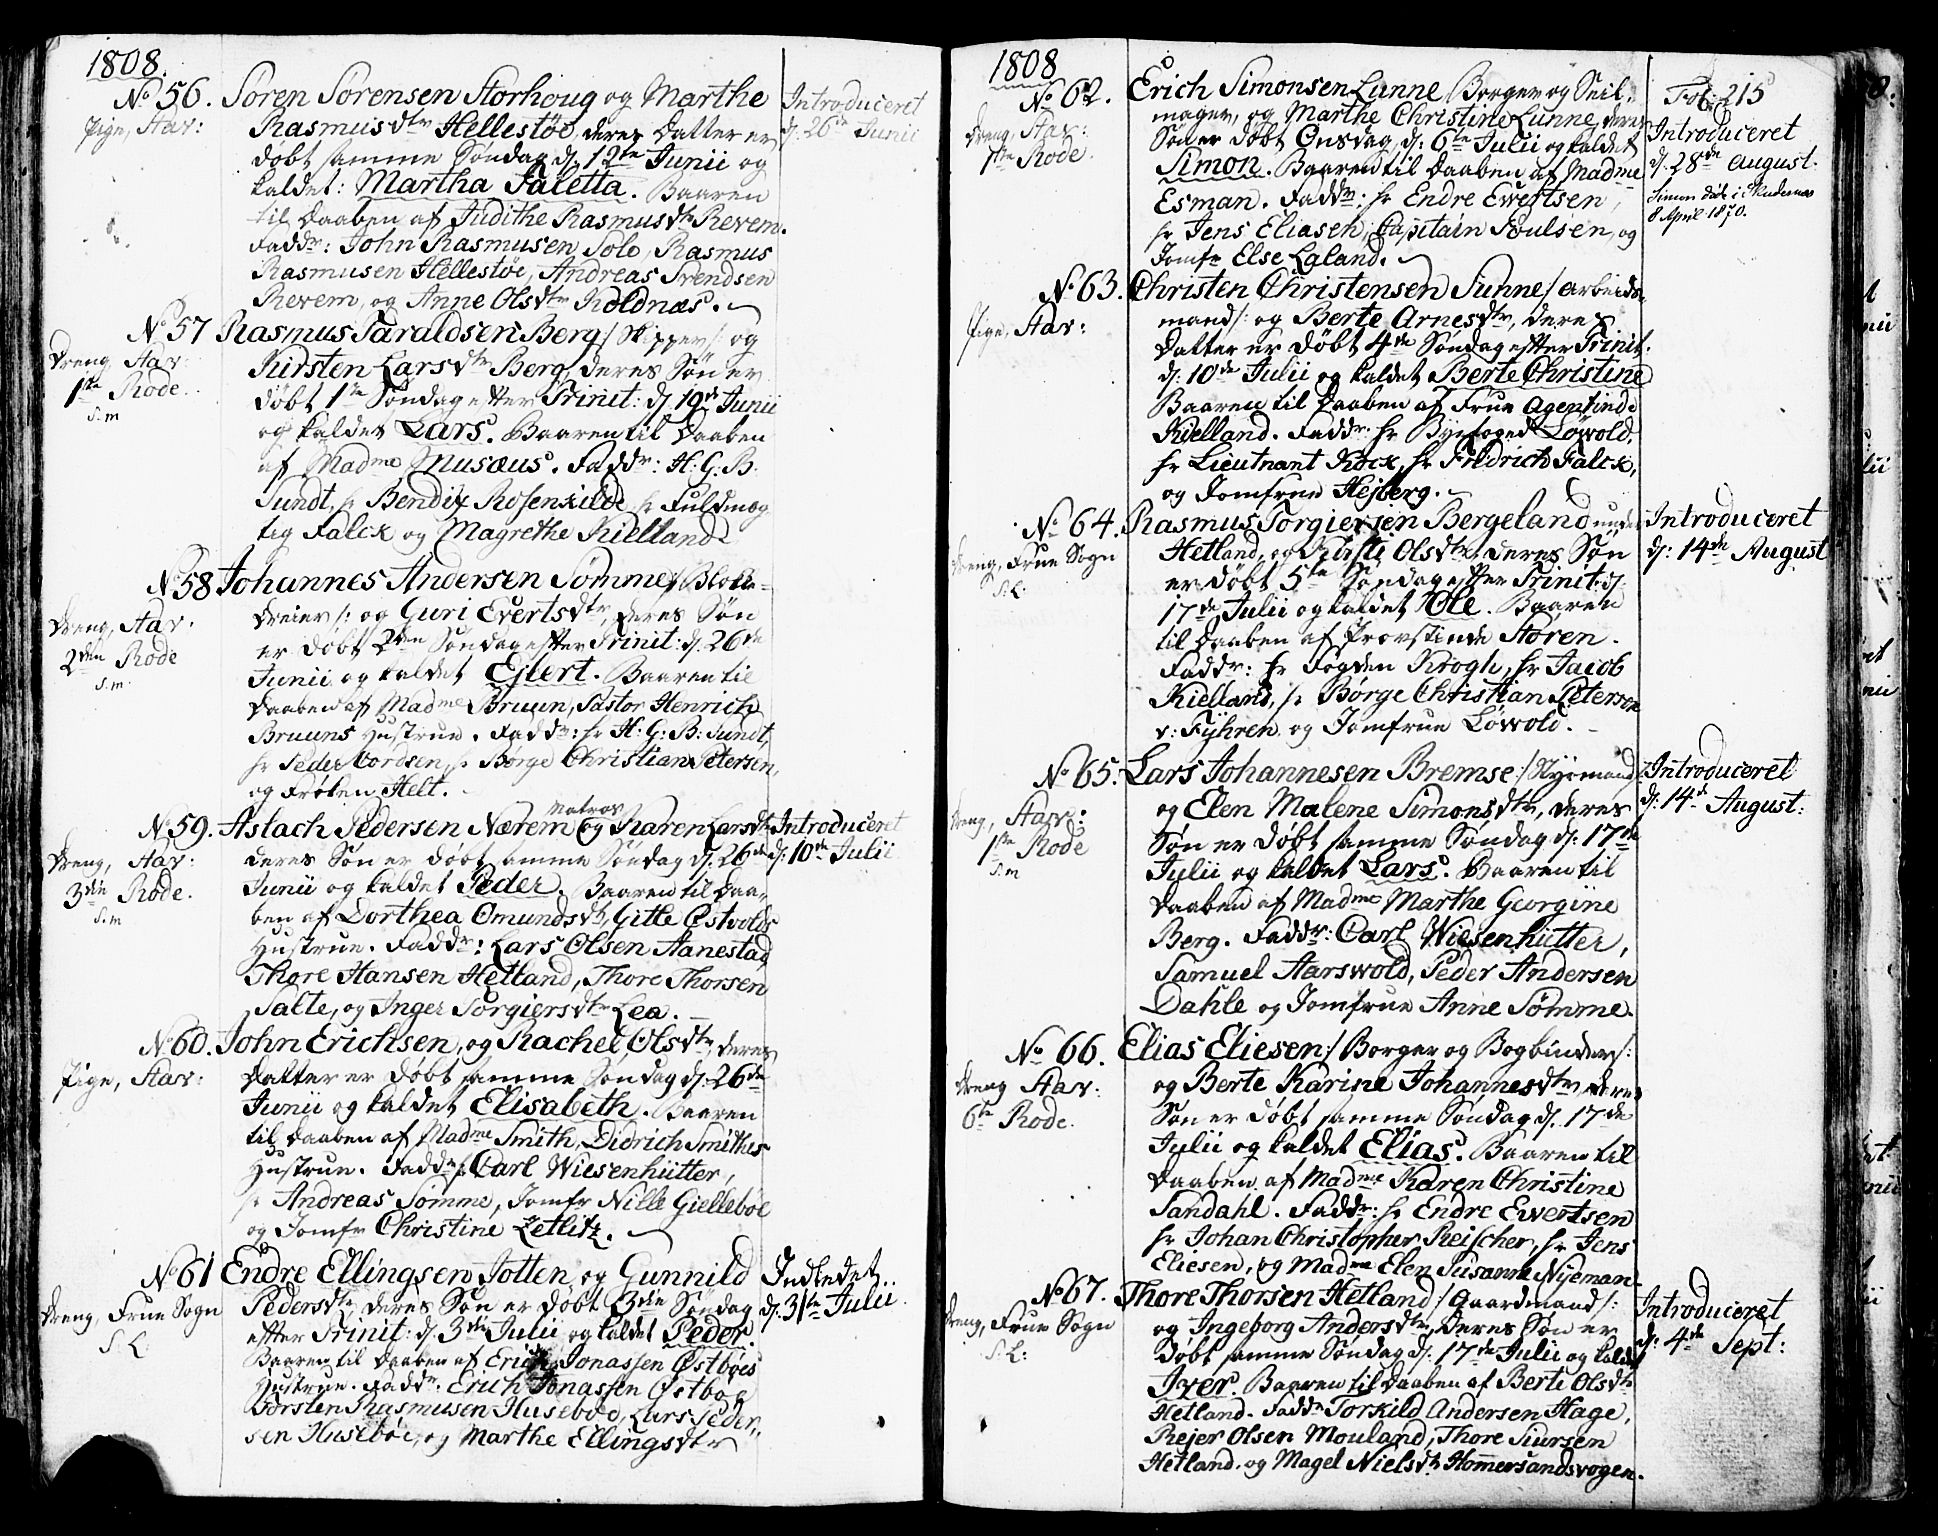 1808.
No 56. Søren Sørensen Storhoug og Marthe
Pige, Stav: Rasmusdtr Hellestøe, deres Datter er
døbt samme Søndag d: 12te Junii og
kaldet: Martha Taletta. Baaren
til Daaben af Judithe Rasmusdtr Revem.
Faddr: John Rasmusen Sole, Rasmus
Rasmusen Hellestøe, Andreas Svendsen
Revem, og Anne Olsdtr Koldnæs.
Introduceret
d: 26de Junii
No 57 Rasmus Taraldsen Berg /: Skipper :/ og
Dreng, Stav: Kirsten Larsdtr Berg, deres Søn er
1ste Rode. døbt 1ste Søndag efter Trinit: d: 19de Junii
S.m og kaldet Lars. Baaren til Daaben
af Madme Musæus. Faddr: H: G: B:
Sundt, hr Bendix Rosenkilde, hr Fuldmæg
tig Falck og Magrethe Kielland.
No 58 Johannes Andersen Sømme /: Blokke-
Dreng, Stav: dreier :/ og Guri Evertsdtr, deres Søn
2den Rode er døbt 2den Søndag efter Trinit: d: 26de
S.m. Junii og kaldet Ejert. Baaren til
Daaben af Madme Bruun, Pastor Henrich
Bruuns Hustrue. Faddr: hr H: G: B: Sundt,
hr Peder Nordsen, hr Børge Christian Petersen,
og Frøken Helt.
Matros
No 59. Aslach Pedersen Nærem og Karen Larsdtr
Dreng, Stav: deres Søn er døbt samme Søndag d: 26de
3die Rode. Junii og kaldet Peder. Baaren til Daa-
S.m ben af Dorthea Omundsdtr, Gitle Østvolds
Hustrue. Faddr: Lars Olsen Aanestad,
Thore Hansen Hetland, Thore Thorsen
Salte, og Inger Torgiersdtr Lea.
Introduceret
d: 10de Julii
No 60. John Erichsen, og Rachel Olsdtr, deres
Pige, Stav: Datter er døbt samme Søndag d: 26de
Junii og kaldet Elisabeth. Baaren
til Daaben af Madme Smith, Didrich Smithes
Hustrue. Faddr: Carl Wiesenhütter,
hr Andreas Sømme, Jomfr Nille Giellebøe
og Jomfr Christine Zetlitz.
No 61 Endre Ellingsen Jotten og Gunnild
Dreng, Frue Sogn Pedersdtr, deres Søn er døbt 3die Søndag
S: L: efter Trinit: d: 3die Julii og kaldet Peder.
Baaren til Daaben af Erich Jonassen Østbøes
Hustrue. Faddr: Erich Jonassen Østbøe
Torsten Rasmusen Husebøe, Lars Peder-
sen Husebøe, og Marthe Ellingsdtr
Indledet
d: 31te Julii
1808
Fol: 215
No 62. Erich Simonsen Lunne Borger og Seil-
Dreng, Stav: mager, og Marthe Christine Lunne, deres
1ste Rode. Søn er døbt Onsdag d: 6te Julii og kaldet
Simon. Baaren til Daaben af Madme
Esman. Faddr: hr Endre Ewertsen,
hr Jens Eliasen, Capitain Poulsen, og
Jomfr Else Laland.
Introduceret
d: 28de August.
Simon døde i Skudenæs
8 April 1870.
No 63. Christen Christensen Sunne /: arbeids-
Pige, Stav: mand :/ og Berte Arnesdtr, deres
Datter er døbt 4de Søndag efter Trinit:
d: 10de Julii og kaldet Berte Christine
Baaren til Daaben af Frue Agentinde
Kielland. Faddr: hr Byefoged Løwold,
hr Lieutnant Kock, hr Fridrich Falck,
og Jomfrue Hejberg.
No 64. Rasmus Torgiersen Bergeland under
Dreng, Frue Sogn Hetland, og Kirsti Olsdtr, deres Søn
S: L: er døbt 5te Søndag efter Trinit: d:
17de Julii og kaldet Ole. Baaren
til Daaben af Provstinde Støren.
Faddr: hr Fogden Krogh, hr Jacob
Kielland, hr Børge Christian Peterson
v: Fyhren og Jomfrue Løwold.
Introduceret
d: 14de August
No 65. Lars Johannesen Bremse /: Nyemand :/
Dreng, Stav: og Elen Malene Simonsdtr, deres
1ste Rode Søn er døbt samme Søndag d: 17de
S.m Julii og kaldet Lars. Baaren til
Daaben af Madme Marthe Georgine
Berg. Faddr: Carl Wiesenhütter,
Samuel Aarswold, Peder Andersen
Dahle og Jomfrue Anne Sømme.
Introduceret
d: 14de August:
No 66. Elias Eliesen /: Borger og Bogbinder :/
Dreng Stav: og Berte Karine Johannesdtr, deres
6te Rode. Søn er døbt samme Søndag d: 17de
Julii og kaldet Elias. Baaren til
Daaben af Madme Karen Christine
Sandahl. Faddr: hr Endre Ewertsen
hr Johan Christopher Reischer, hr Jens
Eliesen, og Madme Elen Susanne Nyeman
No 67. Thore Thorsen Hetland /: Gaardmand :/
Dreng, Frue Sogn og Ingeborg Andersdtr, deres Søn er
S: L: døbt samme Søndag d: 17de Julii og kaldet
Iver. Baaren til Daaben af Berte Olsdtr
Hetland. Faddr Torkild Andersen Hage,
Rejer Olsen Mouland, Thore Siursen
Hetland. og Magel Nielsdtr Hommersandsvogen.
Introduceret
d: 4de Sept: